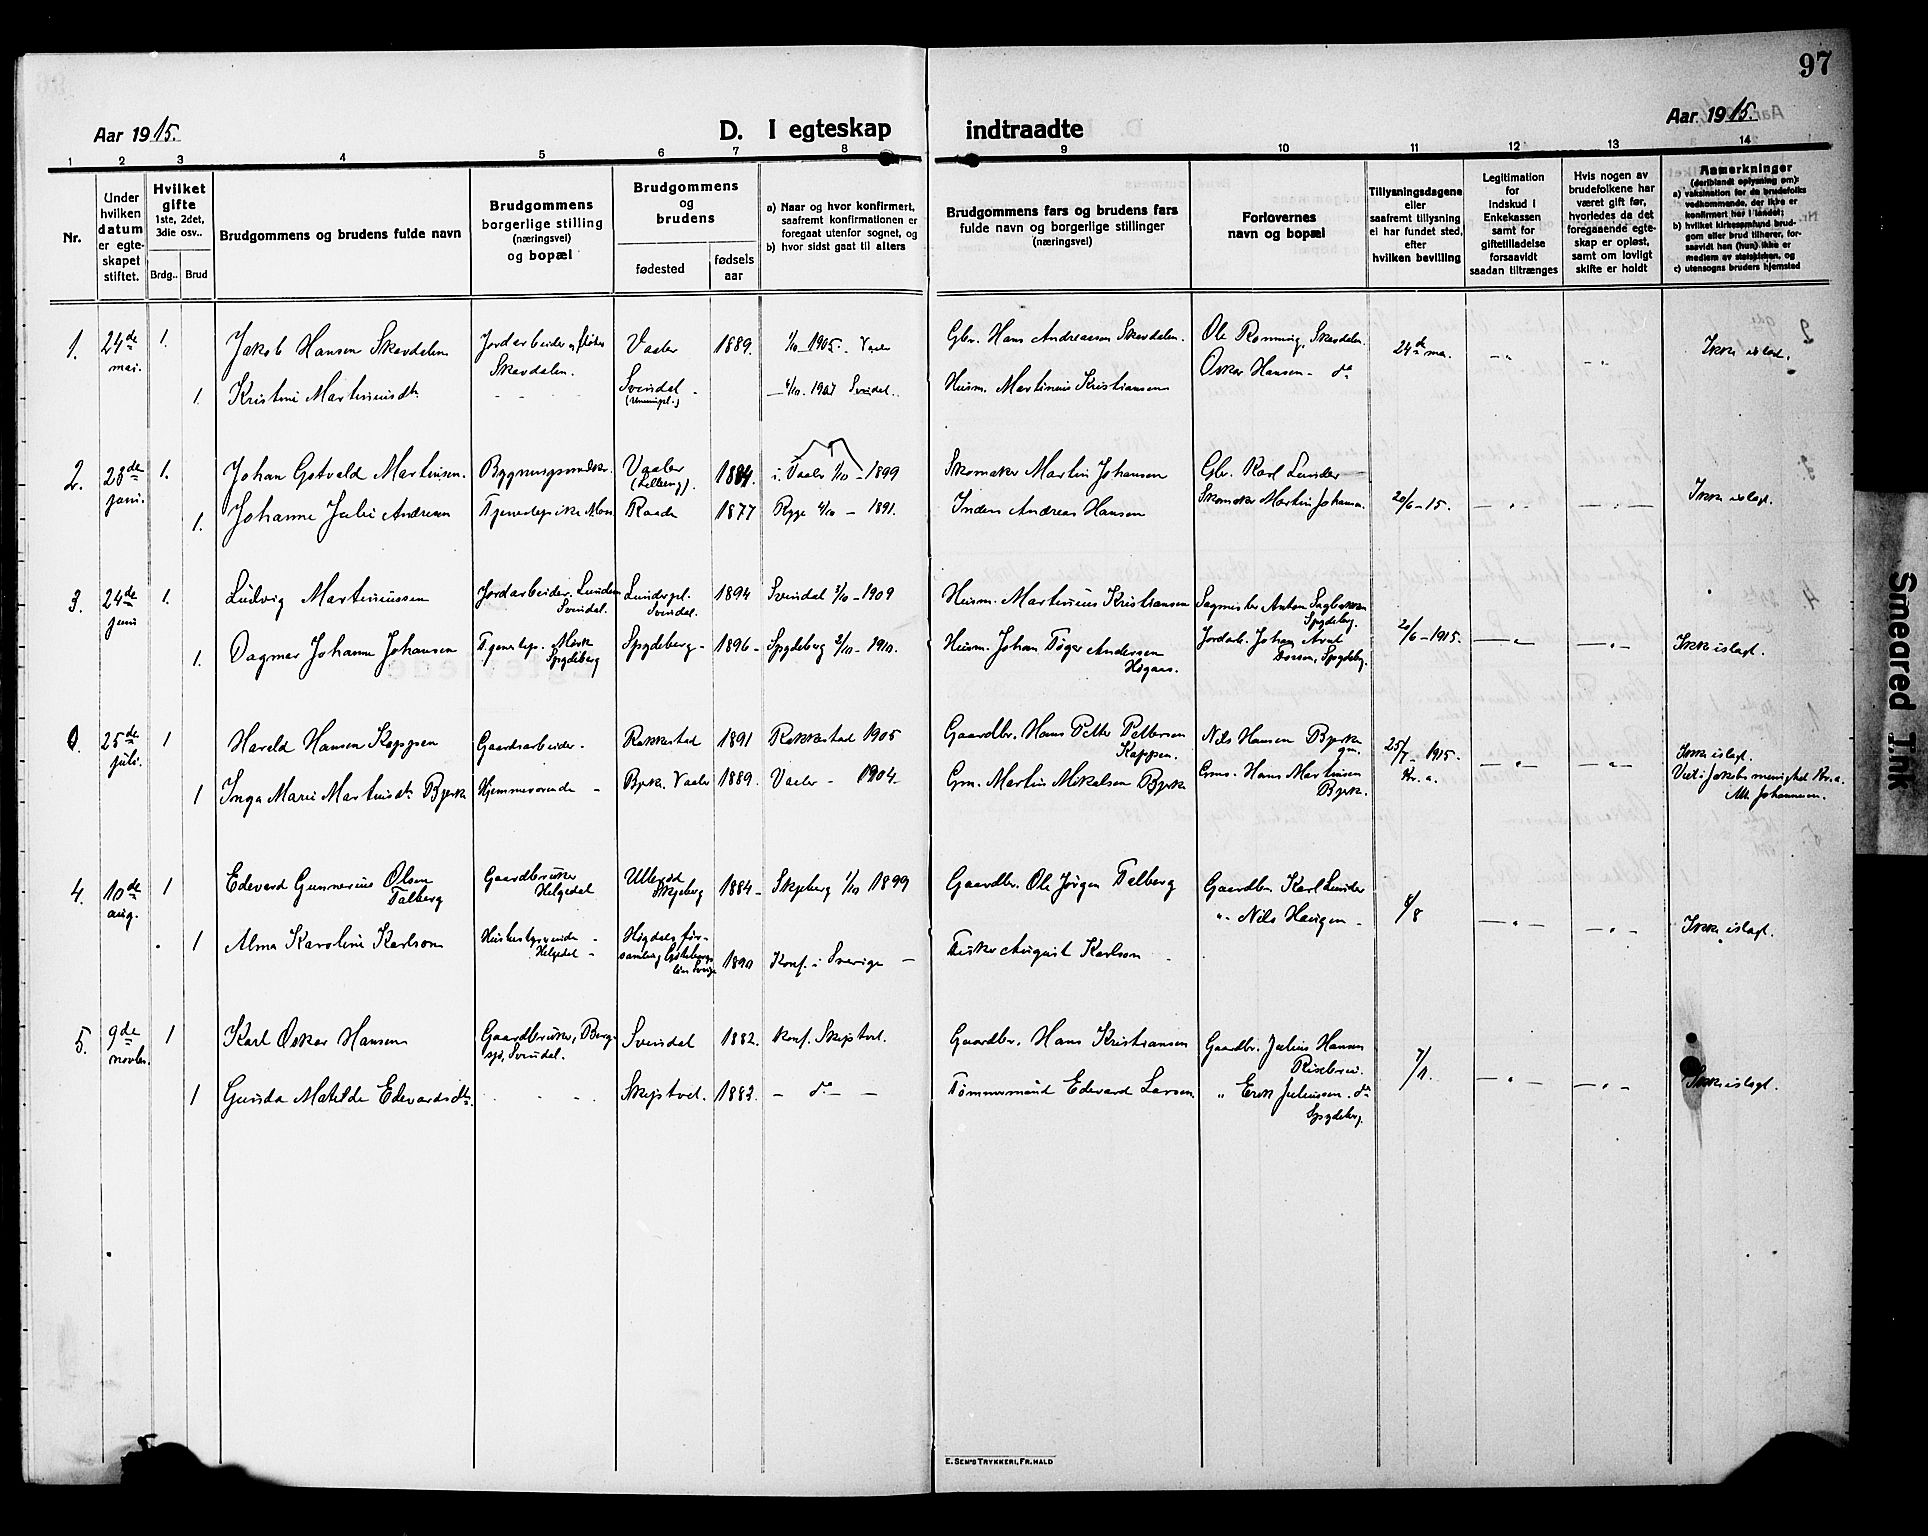 97
Aar 1915.
D. I egteskap indtraadte
Aar 1915.
1 2 3 4 5 6 7 8 9 10 11 12 13 14
Nr.
Under hvilken datum er egte-skapet stiftet.
Hvilket gifte
1ste, 2det, 3die osv..
Brdg.. Brud
Brudgommens og brudens fulde navn
Brudgommens borgerlige stilling (næringsvei) og bopæl
Brudgommens og brudens
fødested
fødsels aar
a) Naar og hvor konfirmert, saafremt konfirmationen er foregaat utenfor sognet, og
b) hvor sidst gaat til alters
Brudgommens fars og brudens fars fulde navn og borgerlige stillinger (næringsvei)
Forlovernes navn og bopæl
Tillysningsdagene eller saafremt tillysning ei har fundet sted, efter hvilken bevilling
Legitimation for indskud i Enkekassen samt for giftetilladelse forsaavidt saadan tiltrænges
Hvis nogen av brudefolkene har været gift før, hvorledes da det foregaaende egte-skap er opløst, samt om lovligt skifte er holdt
Anmerkninger (deriblandt oplysning om):
a) vaksination for de brudefolks vedkommende, der ikke er konfirmert her i landet;
b) hvilket kirkesamfund brud-gom eller brud tilhører, for-saavidt han (hun) ikke er medlem av statskirken, og
c) utensogns bruders hjemsted
1. 24de mai. 1. Jakob Hansen Skovdalen Jordarbeider Skovdalen. Vaaler 1889. 1/10 1905. Vaaler Gbr. Hans Andreassen Skovdalen. Ole Romming, Skovdalen. 24de mai. Ikke islagt.
1. Kristine Martinusdt. Svindal 4/10. 1907 Svindal. Husm. Martinius Kristiansen Oskar Hansen - do
2. 28de juni. 1. Johan Gotvald Martinsen. Bygningssnekker. Vaaler 1884 i Vaaler 1/10 - 1899 Skomaker Martin Johansen Gbr. Karl Lunder 20/6 - 15. Ikke islagt.
1. Johanne Julie Andresen Tjenestepike Moss Raade 1877 Rygge 4/10 - 1891. Inders Andreas Hansen Skomaker Martin Johansen
3. 24de juni 1. Ludvig Martiniussen Jordarbeider Lunden Svindal. Lunderpl. Svindal. 1894 Svindal 3/10 - 1909 Husm. Martinius Kristiansen Sagmester Anton Sagbakken Spydeberg. 20/6 - 1915. Ikke islagt.
1. Dagmar Johanne Johansen Tjenestep. Mork Spydeberg Spydeberg - 1896 - Spydeberg 2/10 - 1910. Husm. Johan Tøger Andersen Høgaas. Jordarb. Johan Arnt Spydeberg.
25de juli. 1 Harald Hansen Kappen Gaardsarbeider - Rakkestad 1891 Rakkestad 1905 Gaardbr. Hans Petter Pettersen Kappen. Nils Hansen Bjerke gm. 25/7 - 1915. Kr.a. Ikke islagt.
1 Inga Marie Martinsdt. Bjerke Hjemmeværende - Bjerk. Vaaler 1889. Vaaler - 1904 Gm. Martin Mikalsen Bjerke Grms. Hans Martinsen Bjerk. Viet i Jakobs menighed Kr.a. Johannesen.
4. 10de aug. 1 Edevard Gunnerius Olsen Talberg Gaardbruker Helgedal Ullerød Skjeberg 1884 - Skjeberg 1/10 1899 Gaardbr. Ole Jørgen Talberg Gaardbr. Karl Lunder 8/8 Ikke islagt.
1 Alma Karoline Karlson Husbestyrerinde Helgedal - Høgdals för-samling 1890 Konf. i Sverige - Fisker August Karlson „ Nils Haugen -
5. 9de novbr. 1 Karl Oskar Hansen Gaardbruker, Berg-sjø, Svindal. Svindal 1882. konf. Skiptvet. Gaardbr. Hans Kristiansen Gaardbr. Julius Hansen 7/11. Ikke islagt.
1 Gunda Matilde Edevardsdt. Skiptvet. 1883. - do - Tømmermand Edevard Larsen „ Erik Juliussen. do Spydeberg.
E. SEM'S TRYKKERI, FR.HALD
Smeared Ink